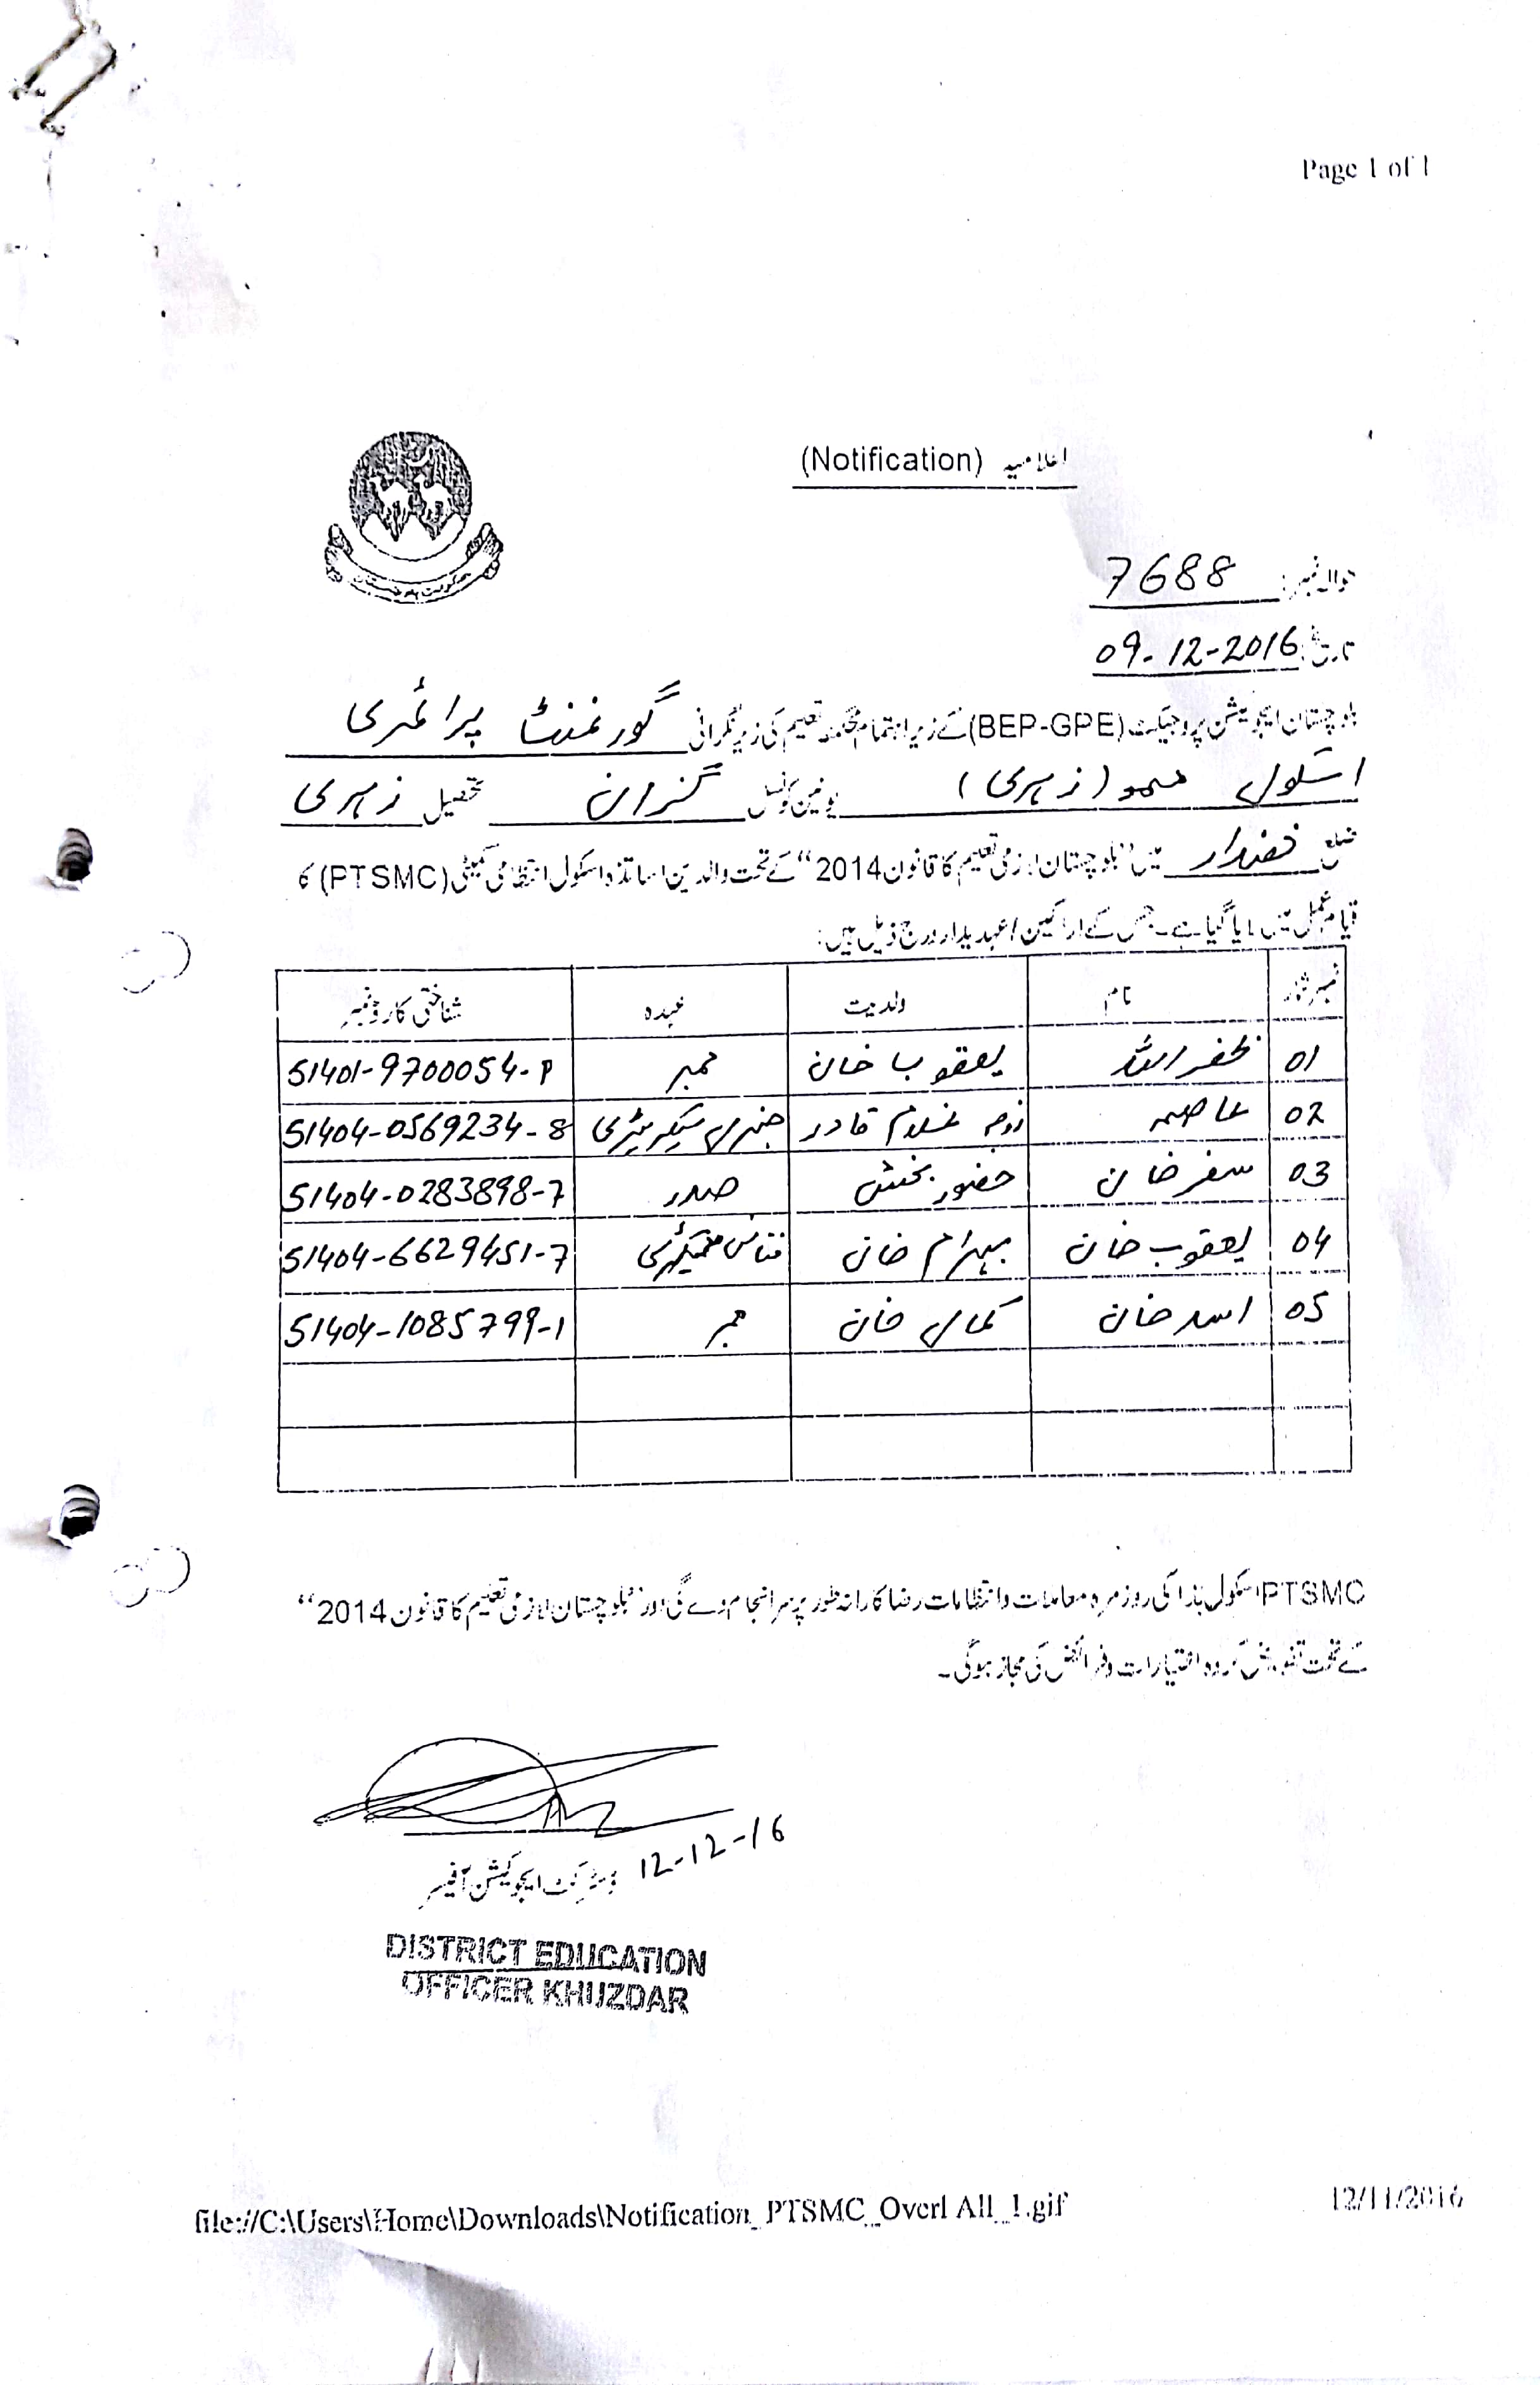 Page 1 of 1
اعلامیہ (Notification)
حوالہ نمبر: 7688
تاریخ: 09-12-2016
بلوچستان ایجوکیشن پروجیکٹ (BEP-GPE) کے زیر اہتمام محکمہ تعلیم کی زیر نگرانی گورنمنٹ پرائمری
اسکول (زہری) یونین کونسل گزان تحصیل زہری
ضلع خضدار میں "بلوچستان لازمی تعلیم کا قانون 2014" کے تحت والدین اساتذہ اسکول انتظامی کمیٹی (PTSMC) کا
قیام عمل میں لایا گیا ہے۔ جس کے اراکین/عہدیدار درج ذیل ہیں:
نمبر شمار نام ولدیت عہدہ شناختی کارڈ نمبر
01 ظفر اللہ یعقوب خان ممبر 51401-9700054-9
02 عاصمہ زوجہ غلام قادر جنرل سیکریٹری 51404-0569234-8
03 سفر خان حضور بخش صدر 51404-0283898-7
04 یعقوب خان بہرام خان فنانس سیکریٹری 51404-6629451-7
05 اسد خان کمال خان ممبر 51404-1085799-1
PTSMC اسکول ہذا کی روز مرہ معاملات و انتظامات رضا کارانہ طور پر سر انجام دے گی اور "بلوچستان لازمی تعلیم کا قانون 2014"
کے تحت تفویض کردہ اختیارات و فرائض کی مجاز ہوگی۔
12-12-16
ڈسٹرکٹ ایجوکیشن آفیسر
DISTRICT EDUCATION
OFFICER KHUZDAR
file://C:\Users\Home\Downloads\Notification_PTSMC_Overl All_1.gif 12/11/2016